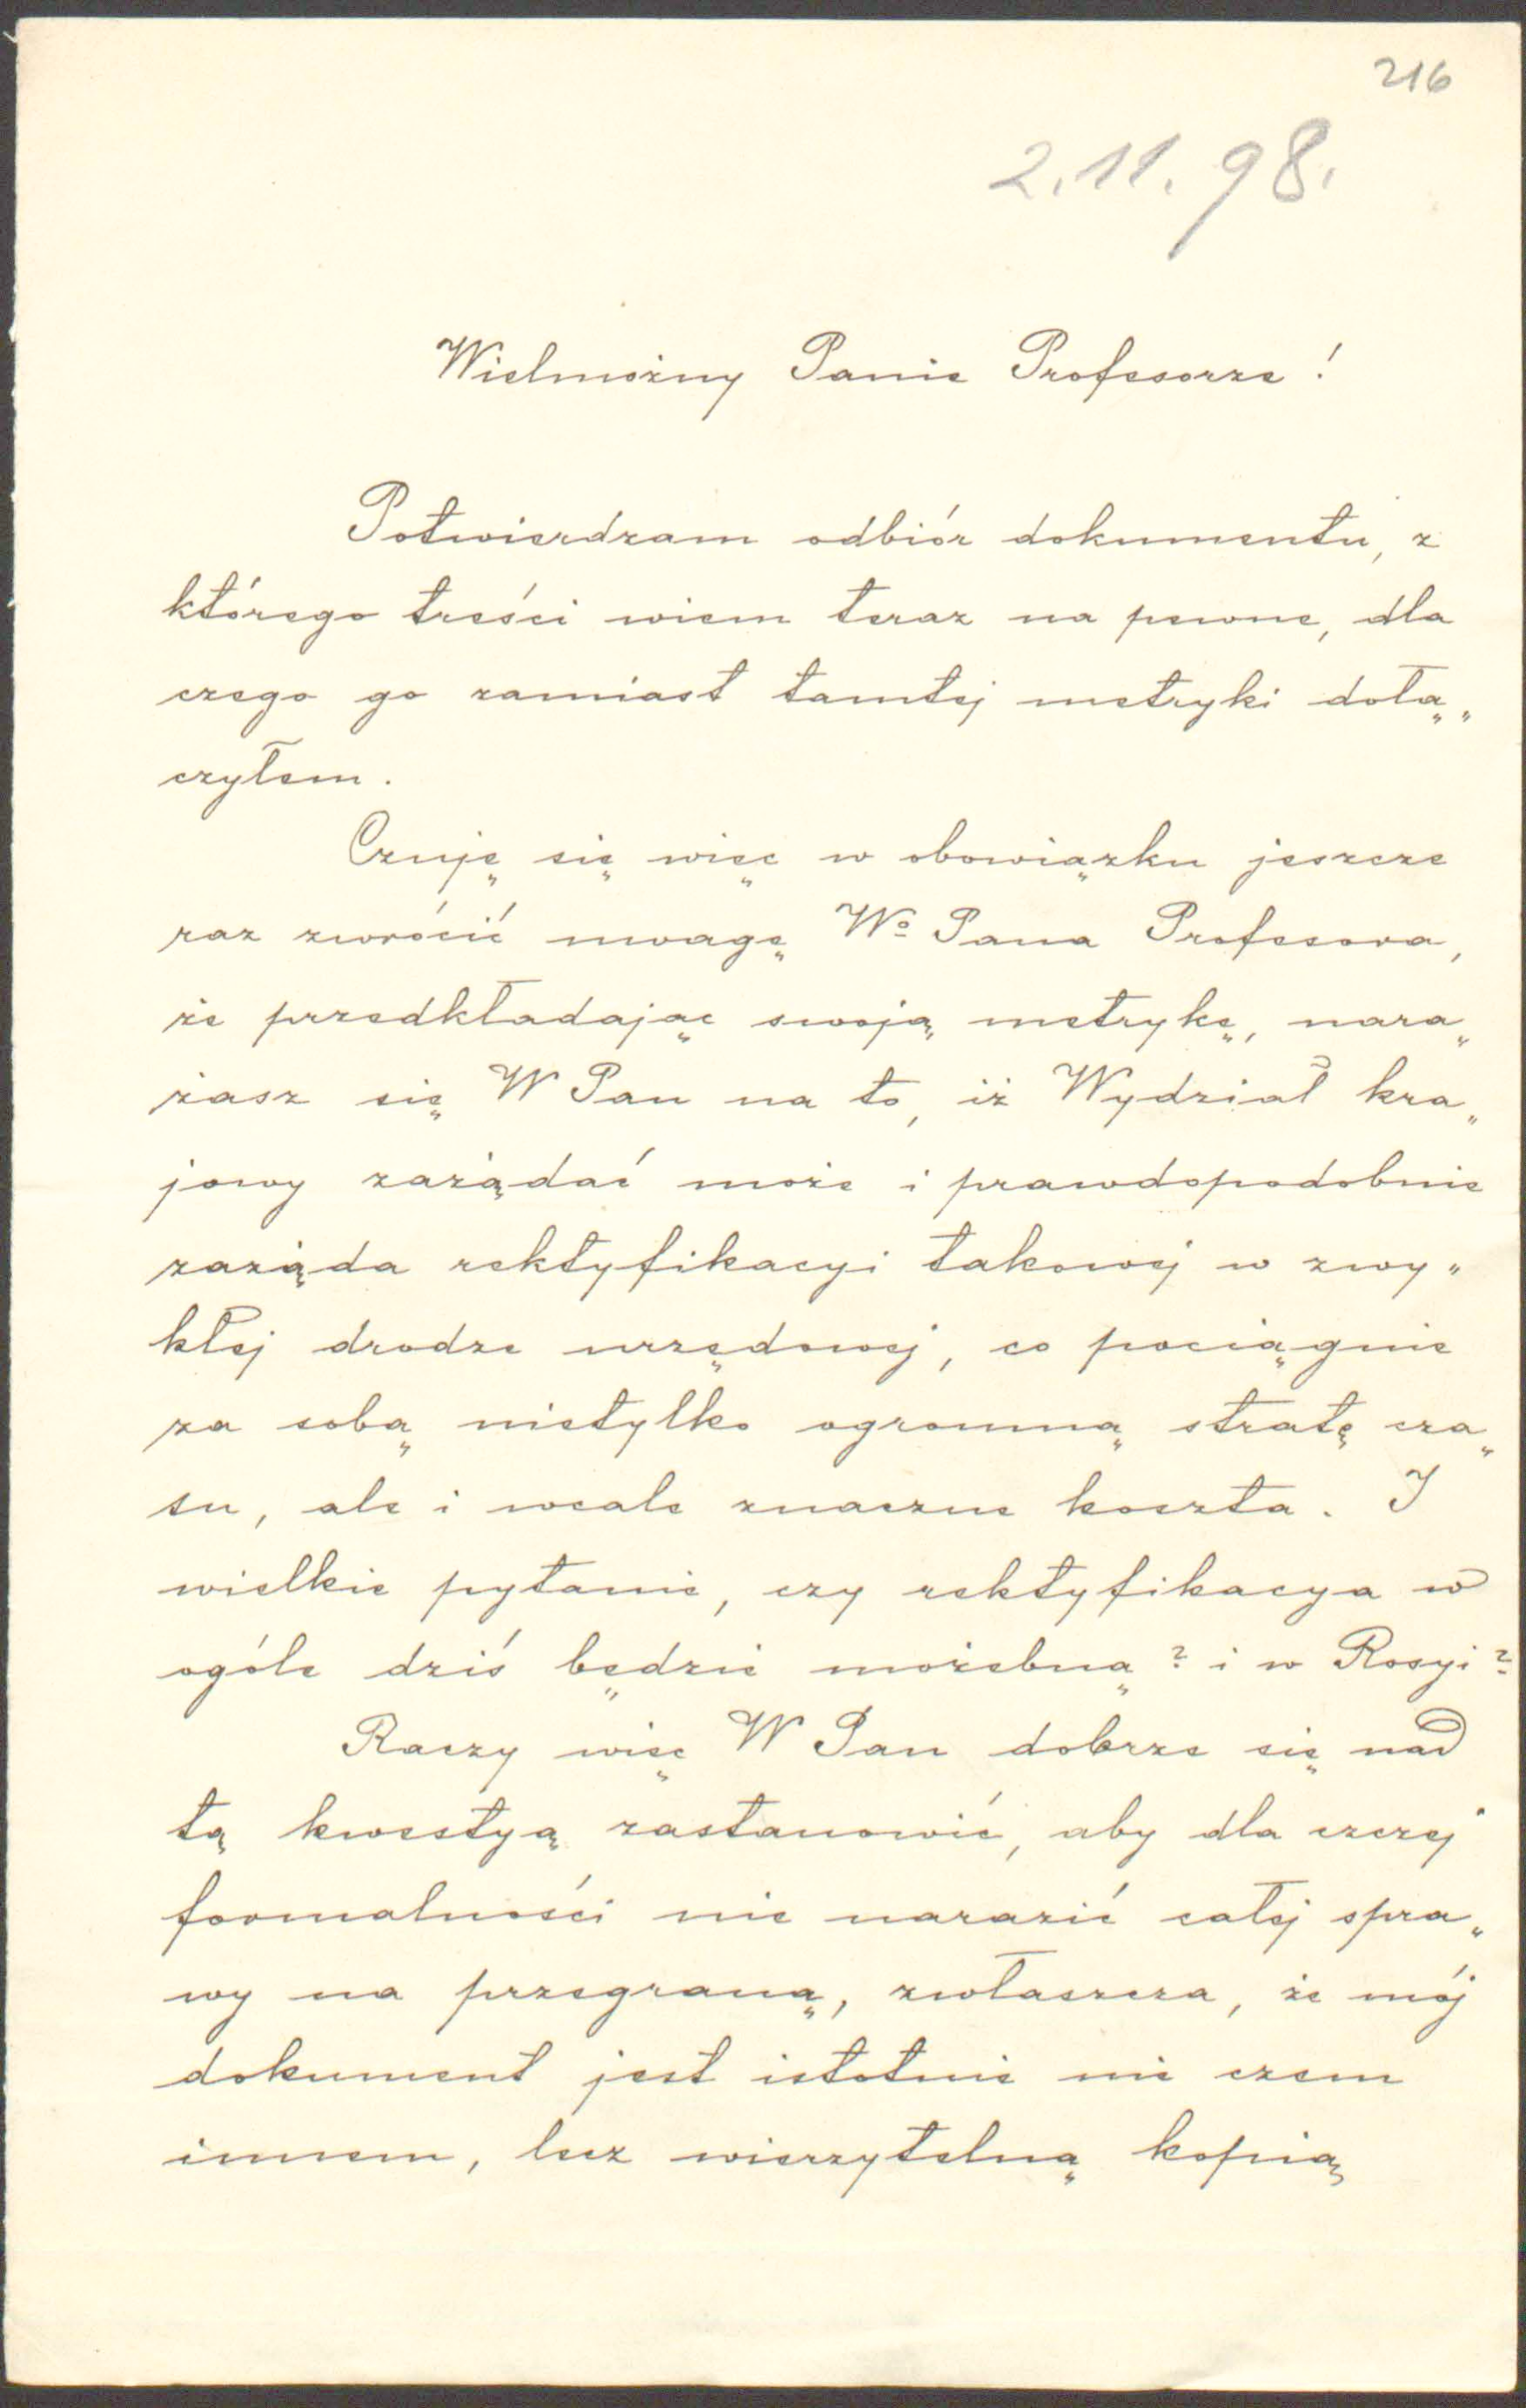 216
2.11.98.
Wielmożny Panie Profesorze!
Potwierdzam odbiór dokumentu, z
którego treści wiem teraz na pewne, dla
czego go zamiast tamtej metryki dołą„
czyłem.
Czuję się więc w obowiązku jeszcze
raz zwrócić uwagę Wº Pana Profesora,
że przedkładając swoją metrykę, nara„
żasz się W Pan na to, iż Wydział kra„
jowy zażądać może i prawdopodobnie
zażąda rektyfikacyi takowej w zwy„
kłej drodze urzędowej, co pociągnie
za sobą nietylko ogromną stratę cza„
su, ale i wcale znaczne koszta. I
wielkie pytanie, czy rektyfikacya w
ogóle dziś będzie możebną? i w Rosyi?
Raczy więc W Pan dobrze się nad
tą kwestyą zastanowić, aby dla czczej
formalności nie narazić całej spra„
wy na przegraną, zwłaszcza, że mój
dokument jest istotnie nie czem
innem, lecz wierzytelną kopią